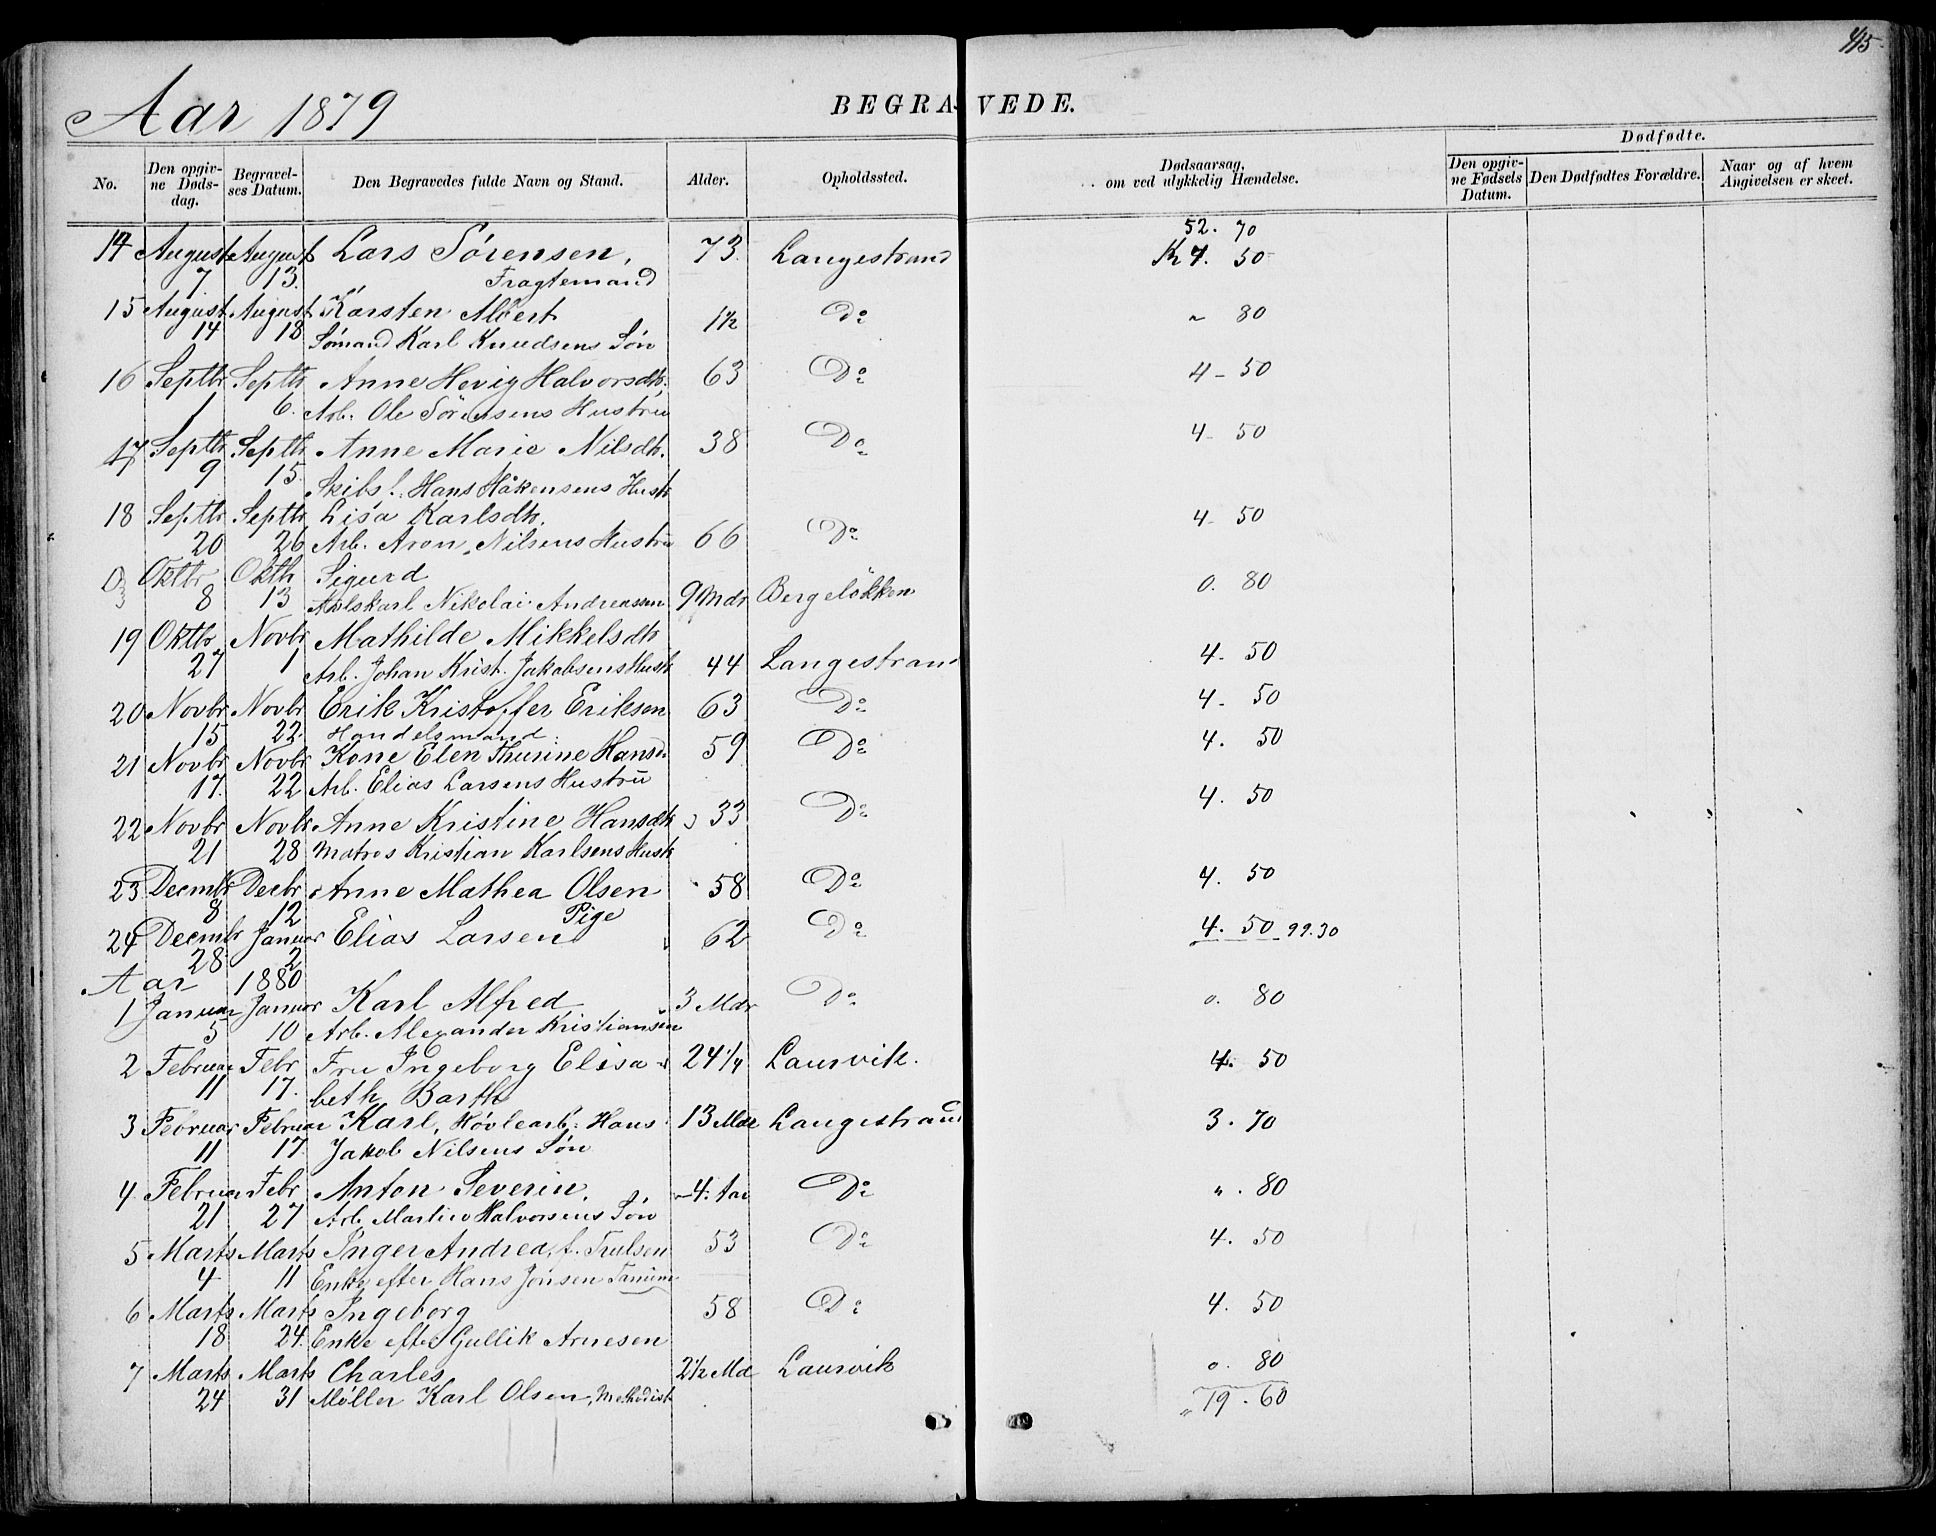 115
Aar 1879
BEGRAVEDE.
No.
Den opgivne Dødsdag.
Begravelses Datum.
Den Begravedes fulde Navn og Stand.
Alder.
Opholdssted.
Dødsaarsag, om ved ulykkelig Hændelse.
Dødfødte.
Den opgivne Fødsels Datum.
Den Dødfødtes Forældre.
Naar og af hvem Angivelsen er skeet.
52. 70
14 August August Lars Sörensen, 73. Langestrand Kr 4. 50
7. 13. Fragtemand
15 August August Karsten Albert 1½ Do " 80
14 18 Sömand Karl Knudsens Sön
16 Septbr Septbr Anne Hevig Halvorsdtr. 63 Do 4 - 50
1 6. Arb. Ole Sörensens Hustru
17 Septbr Septbr Anne Marie Nilsdtr. 38 Do 4 - 50
9 15. Skibs t. Hans Håkensens Hustr
18 Septbr Septbr Lisa Karlsdtr. 4 - 50
20 26 Arb. Aron Nilsens Hustru 66 Do
Oktbr Oktbr Sigurd 0. 80
8 13 Avlskarl Nikolai Andreassen 9 Mdr Bergeløkken
19 Oktbr Novbr Mathilde Mikkelsdtr
27 1 Arb. Johan Krist. Jakobsens Hustr 44 Langestrand 4. 50
20 Novbr Novbr Erik Kristoffer Eriksen 63 Do 4 - 50
15 22. Handelsmand.
21 Novbr Novbr Kone Elen Thurine Hansd. 59 Do 4. 50
17. 22 Arb. Elias Larsens Hustru
22 Novbr Novbr Anne Kristine Hansdtr 33 Do 4. 50
21 28 Matros Kristian Karlsens Hustr
23 Decmbr Decbr Anne Mathea Olsen 58 Do 4. 50
8 12 Pige
24 Decmbr Januar Elias Larsen 62 Do 4. 50 99.30
28 2
Aar 1880
1 Januar Januar Karl Alfred 3 Mdr Do 0. 80
5 10 Arb. Alexander Kristiansen
2 Februar Febr Fru Ingeborg Elisa- 24¼ Laurvik. 4. 50
11 17. beth Barth
3 Februar Februar Karl, Hövlearb: Hans 13 Mdr Langestrand 3. 70
11 17. Jakob Nilsens Sön
4 Februar Febr Anton Severin, 4. Aar Do ". 80
21 27 Arb Martin Halvorsens Sön
5 Marts Marts Inger Andrea, f. Trulsen 53 Do 4. 50
4 11 Enke efter Hans Jönsen Tanum
6 Marts Marts Ingeborg 58 Do 4. 50
18 24. Enke efter Gullik Arnesen
7 Marts Marts Charles 2½ Md Laurvik 0. 80
24 31 Møller Karl Olsen, Methodist " 19. 60